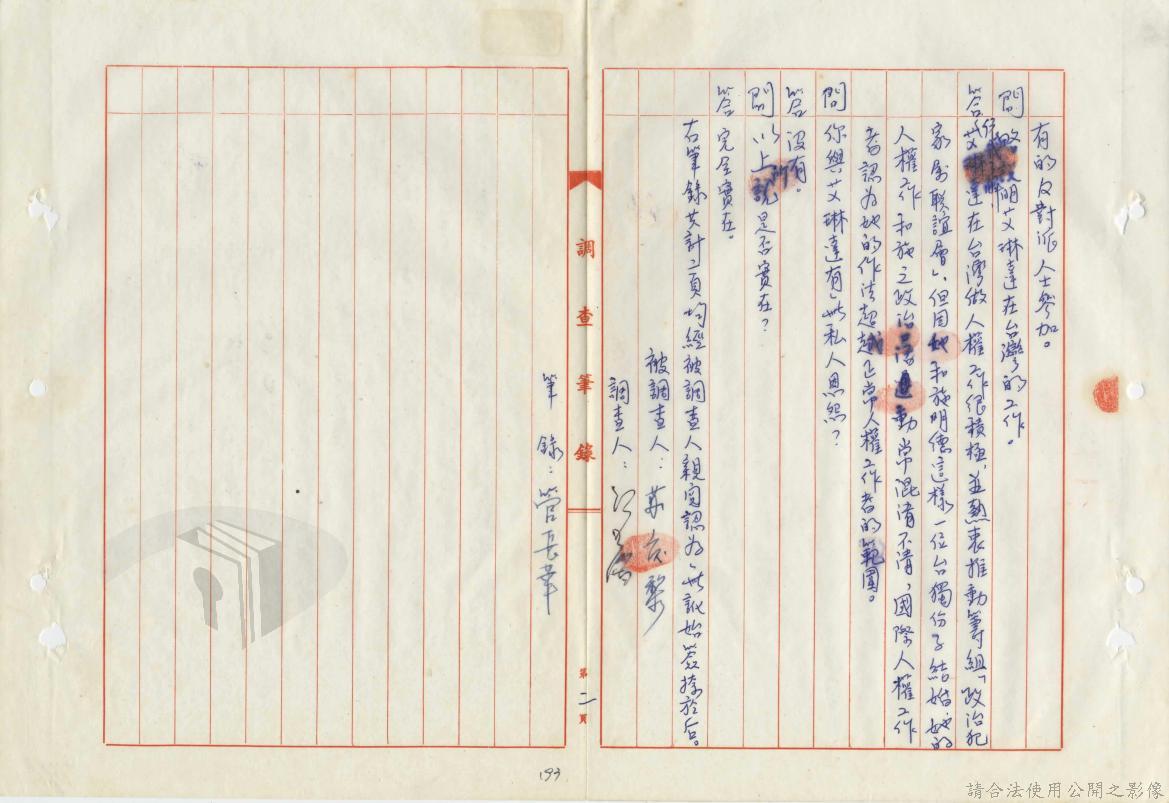 有的反對派人士參加。
問 略說明艾琳達在台灣的工作。
答 艾琳達在台灣做人權工作很積極,並熱衷推動籌組「政治犯
家屬聯誼會」,但因她和施明德這樣一位台獨份子結婚,她的
人權工作和施之政治運動常混淆不清,國際人權工作
者認為她的作法超越正常人權工作者的範圍。
問 你與艾琳達有無私人恩怨?
答 沒有。
問 以上所說是否實在?
答 完全實在。
右筆錄共計二頁均經被調查人親閱認為無訛始簽捺於后。
被調查人:蘇
調查人:
筆錄:管長華
調查筆錄
第二頁
193
請合法使用公開之影像